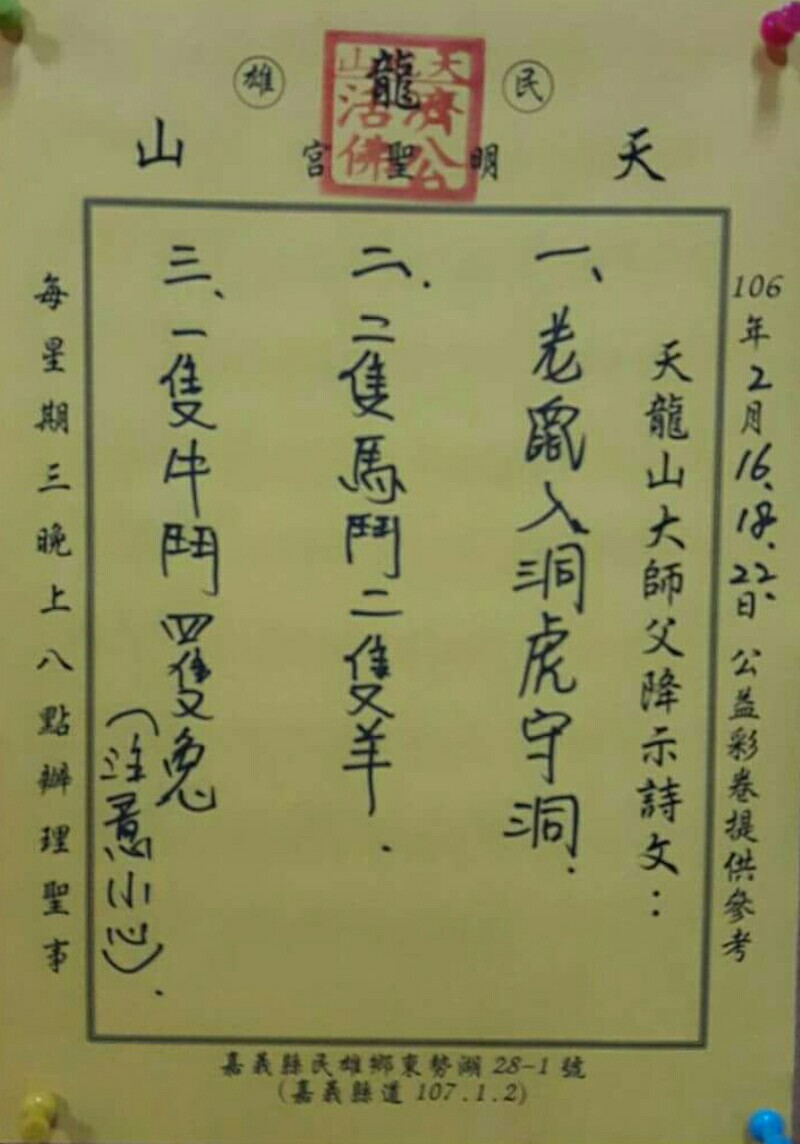 民 雄
天 龍 山
明聖宮
天龍山
濟公
活佛
106年2月16.18.22.日 公益彩卷提供參考
天龍山大師父降示詩文：
一、老鼠入洞虎守洞.
二.二隻馬鬥二隻羊.
三、一隻牛鬥四隻兔
(注意小心).
每星期三晚上八點辦理聖事
嘉義縣民雄鄉東勢湖28-1號
(嘉義縣道107.1.2)